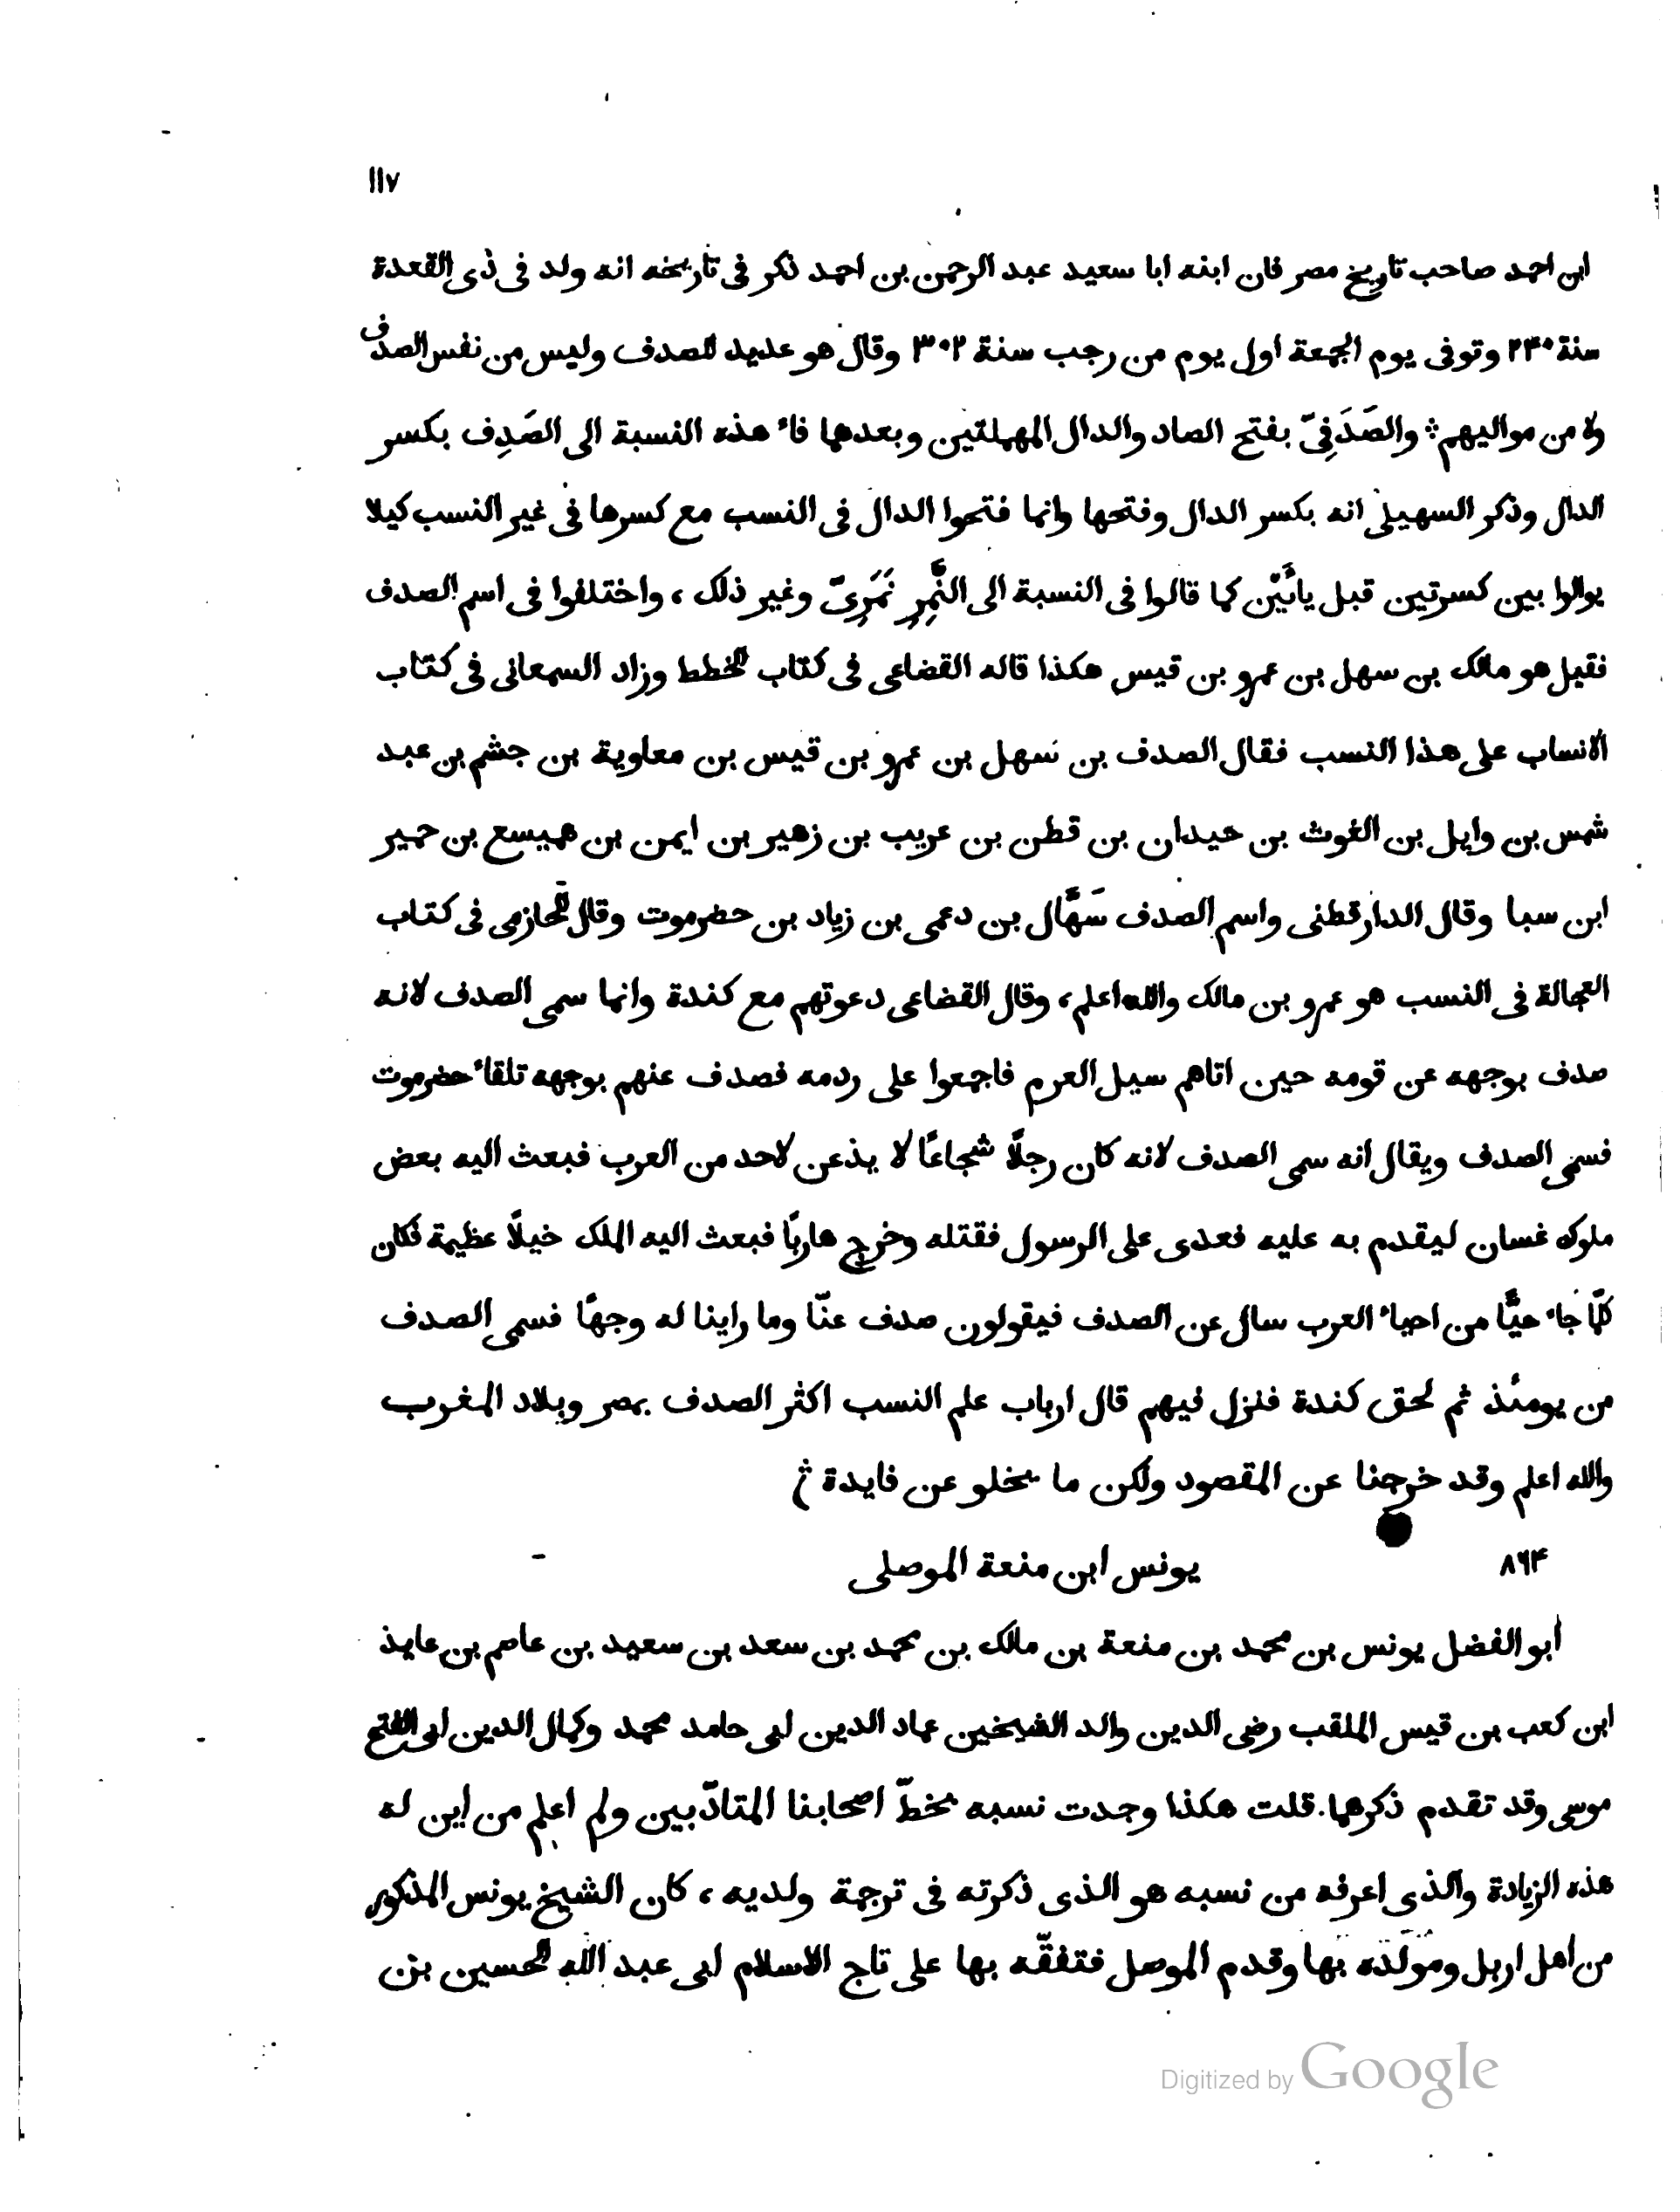 ١١٧
ابن احمد صاحب تاريخ مصر فان ابنه ابا سعيد عبد الرحمن بن احمد ذكر فى تاريخه انه ولد فى ذى القعدة
سنة ٢٤٠ وتوفى يوم الجمعة اول يوم من رجب سنة ٣٠٢ وقال هو عديد للصدف وليس من نفس الصدف
ولا من مواليهم ۞ والصَدَفِىّ بفتح الصاد والدال المهملتين وبعدها فاء هذه النسبة الى الصَدِف بكسر
الدال وذكر السهيلى انه بكسر الدال وفتحها وانما فتحوا الدال فى النسب مع كسرها فى غير النسب كيلا
يوالوا بين كسرتين قبل يائَيْن كما قالوا فى النسبة الى النَّمِرِ نَمَرِىّ وغير ذلك ، واختلفوا فى اسم الصدف
فقيل هو مالك بن سهل بن عمرو بن قيس هكذا قاله القضاعى فى كتاب الخطط وزاد السمعانى فى كتاب
الانساب على هذا النسب فقال الصدف بن سهل بن عمرو بن قيس بن معاوية بن جشم بن عبد
شمس بن وايل بن الغوث بن حيدان بن قطن بن عريب بن زهير بن ايمن بن هميسع بن حمير
ابن سبا وقال الدارقطنى واسم الصدف سَهَّال بن دعمى بن زياد بن حضرموت وقال الحازمى فى كتاب
العجالة فى النسب هو عمرو بن مالك والله اعلم ، وقال القضاعى دعوتهم مع كندة وانما سمى الصدف لانه
صدف بوجهه عن قومه حين اتاهم سيل العرم فاجمعوا على ردمه فصدف عنهم بوجهه تلقاء حضرموت
فسمى الصدف ويقال انه سمى الصدف لانه كان رجلًا شجاعًا لا يذعن لاحد من العرب فبعث اليه بعض
ملوك غسان ليقدم به عليه فعدى على الرسول فقتله وخرج هاربًا فبعث اليه الملك خيلًا عظيمة فكان
كلّما جاء حيًّا من احياء العرب سال عن الصدف فيقولون صدف عنّا وما راينا له وجهًا فسمى الصدف
من يومئذ ثم لحق كندة فنزل فيهم قال ارباب علم النسب اكثر الصدف بمصر وبلاد المغرب
والله اعلم وقد خرجنا عن المقصود ولكن ما يخلو عن فايدة ۞
٨٦۴ يونس ابن منعة الموصلى
ابو الفضل يونس بن محمد بن منعة بن مالك بن محمد بن سعد بن سعيد بن عاصم بن عايذ
ابن كعب بن قيس الملقب رضى الدين والد الشيخين عماد الدين ابى حامد محمد وكمال الدين ابى الفتح
موسى وقد تقدم ذكرهما. قلت هكذا وجدت نسبه بخطّ اصحابنا المتادّبين ولم اعلم من اين له
هذه الزيادة والذى اعرفه من نسبه هو الذى ذكرته فى ترجمة ولديه ، كان الشيخ يونس المذكور
من اهل اربل ومولده بها وقدم الموصل فتفقّه بها على تاج الاسلام ابى عبد الله الحسين بن
Digitized by Google